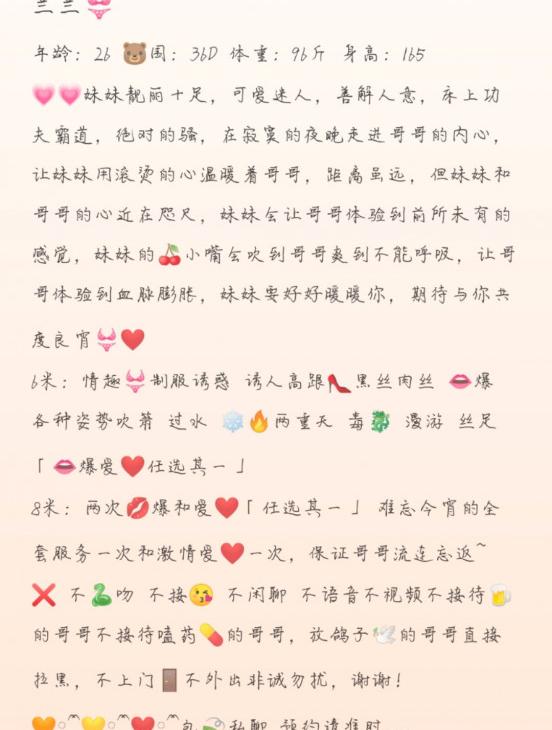 兰兰👙
年龄：26 🐻围：36D 体重：96斤 身高：165
💗💗妹妹靓丽十足，可爱迷人，善解人意，床上功
夫霸道，绝对的骚，在寂寞的夜晚走进哥哥的内心，
让妹妹用滚烫的心温暖着哥哥，距离虽远，但妹妹和
哥哥的心近在咫尺，妹妹会让哥哥体验到前所未有的
感觉，妹妹的🍒小嘴会吹到哥哥爽到不能呼吸，让哥
哥体验到血脉膨胀，妹妹要好好暖暖你，期待与你共
度良宵👙❤️
6米：情趣👙制服诱惑 诱人高跟👠黑丝肉丝 👄爆
各种姿势吹箫 过水 ❄️🔥两重天 毒🐉 漫游 丝足
「👄爆爱❤️任选其一」
8米：两次💋爆和爱❤️「任选其一」 难忘今宵的全
套服务一次和激情爱❤️一次，保证哥哥流连忘返~
❌ 不🐍吻 不接😘 不闲聊 不语音不视频不接待🍺
的哥哥不接待嗑药💊的哥哥，放鸽子🕊️的哥哥直接
拉黑，不上门🚪不外出非诚勿扰，谢谢！
私聊 预约请准时